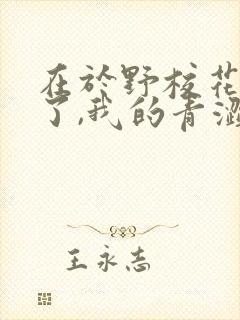 在於野校花
了,我的青澀
王永志